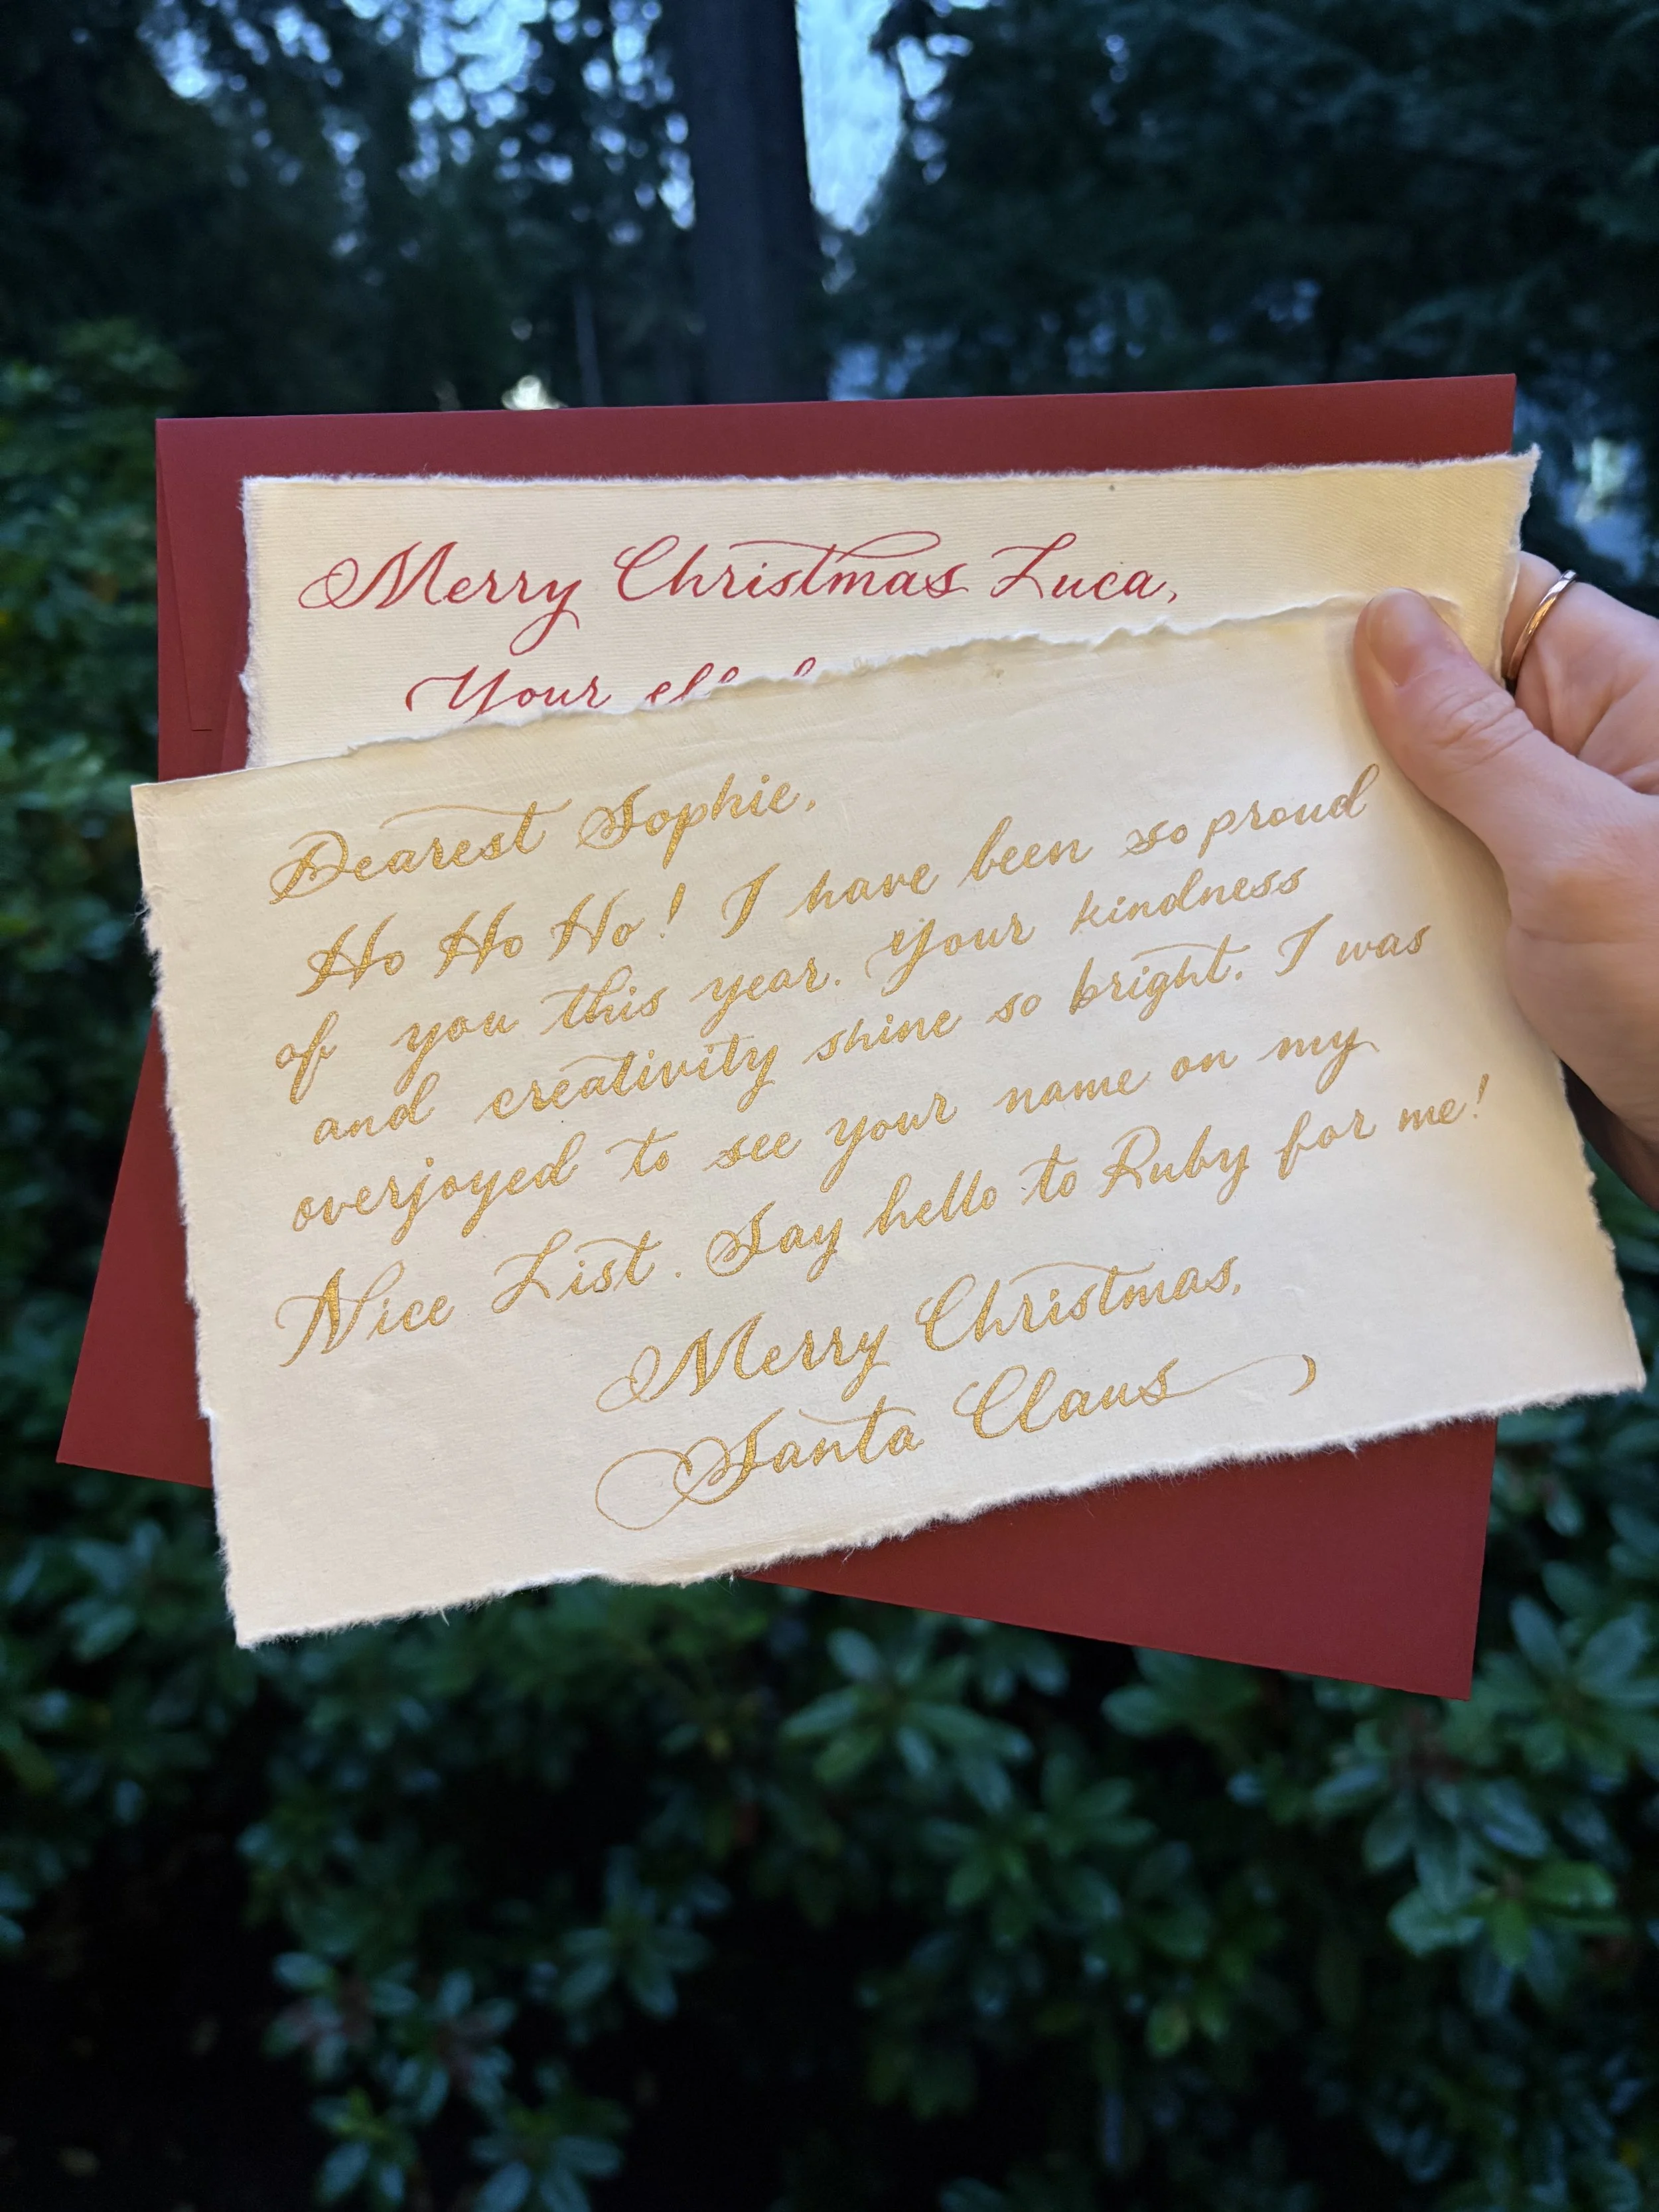 Merry Christmas Luca,
Your
Dearest Sophie,
Ho Ho Ho! I have been so proud
of you this year. Your kindness
and creativity shine so bright. I was
overjoyed to see your name on my
Nice List. Say hello to Ruby for me!
Merry Christmas,
Santa Claus